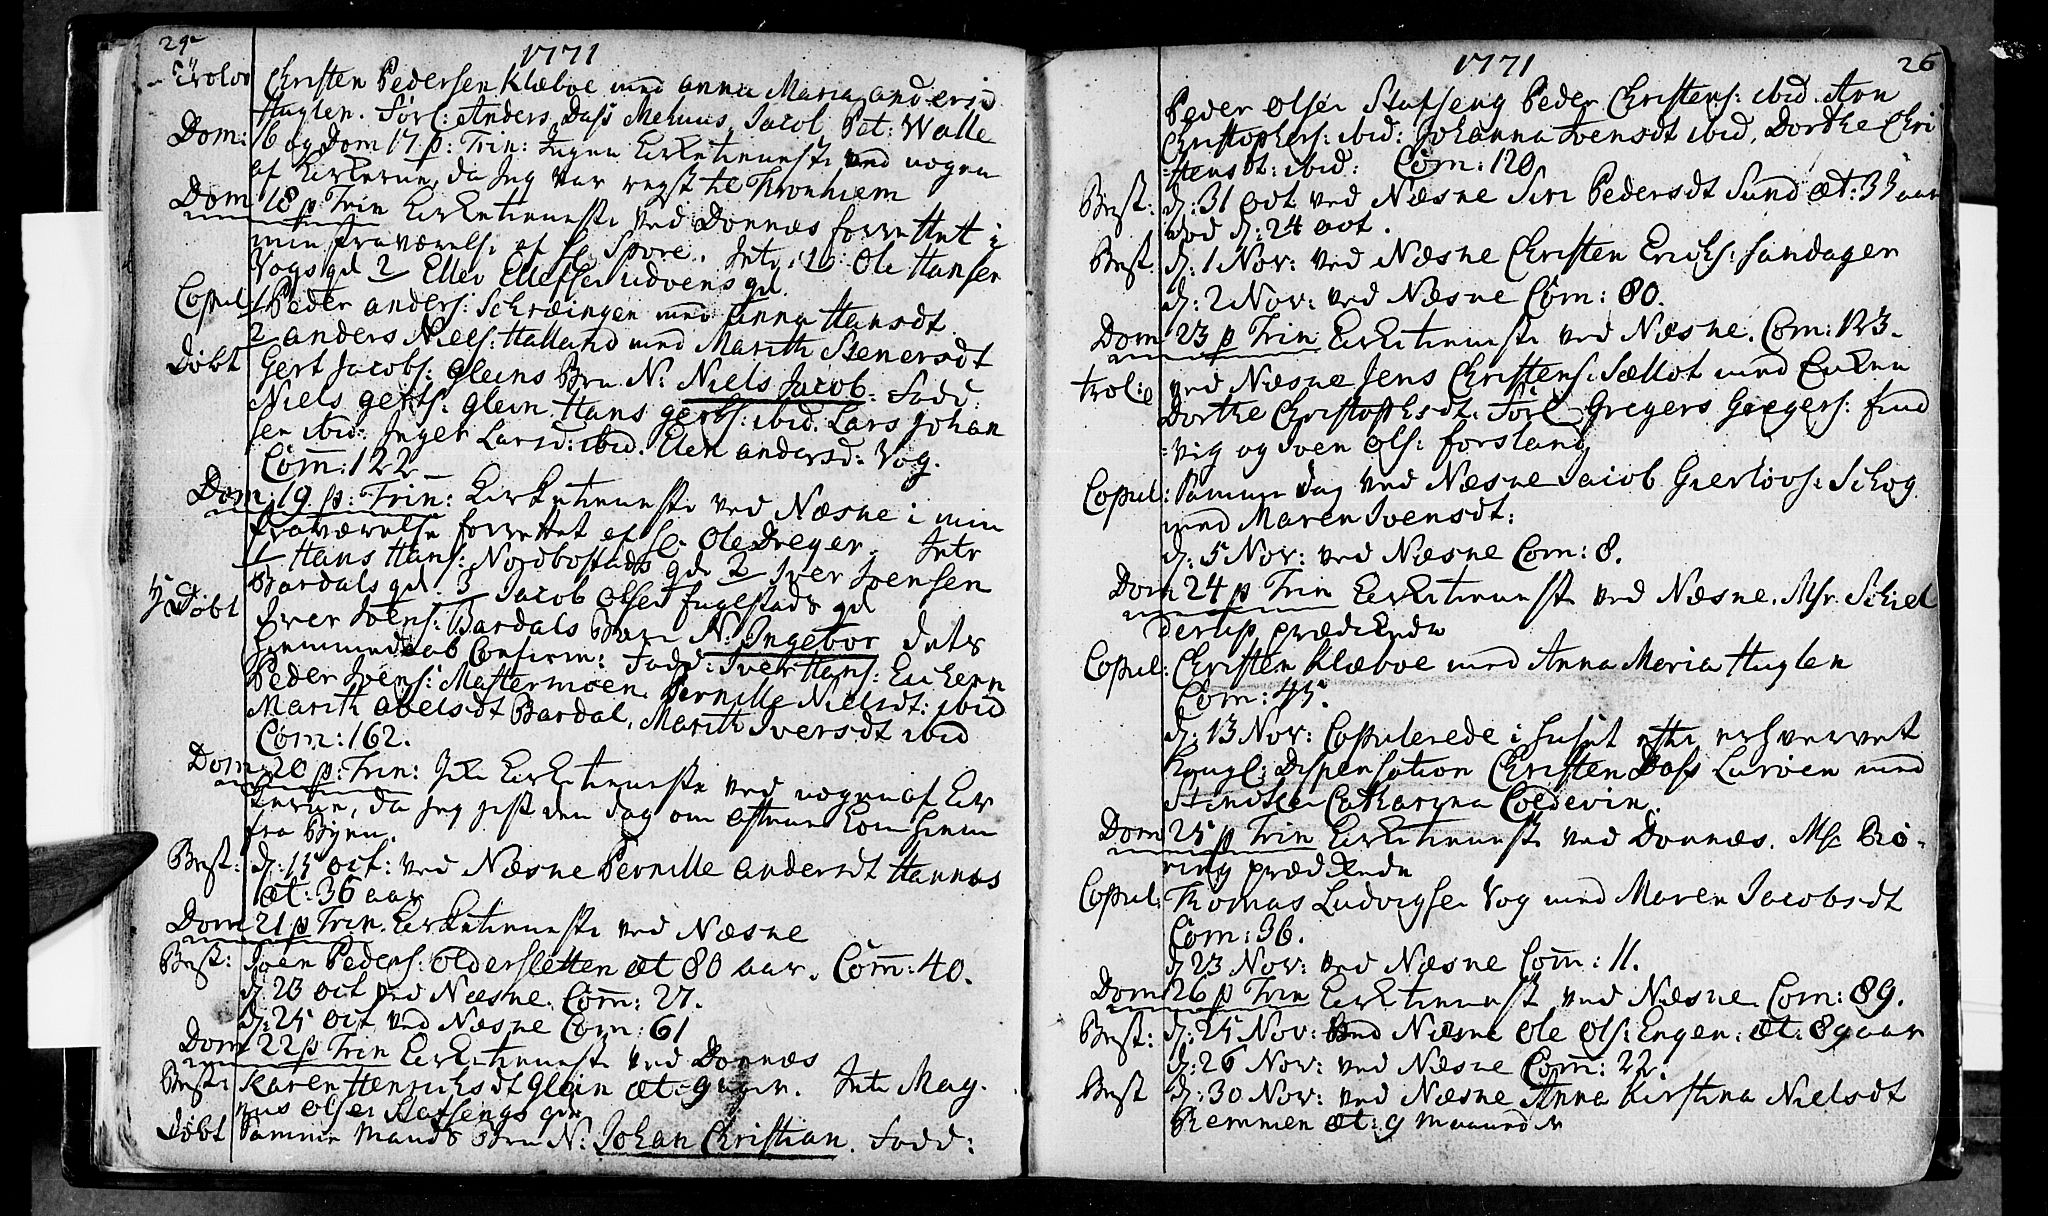 1771
Trolov Christen Pedersen Klæboe med Anna Maria Andersd
Huglen. Forl: Anders Dass Mehuus, Jacob Pet: Walle
Dom: 16 og Dom 17 p: Trin: Ingen Kirketieneste ved nogen
af Kirkerne, da Jeg var reyst til Tronhiem
Dom 18 p Trin Kirketieneste ved Dønnæs forrettet i
min fraværelse af Hr Spore. Intr: 1 Ole Hansen
Vogs gd 2 Eller Ellefsen gd.
Copul 1 Peder Anders: Schredingen med Anna Hansdt
2 Anders Niels: Halland med Marith Stenersdt
Døbt Gert Jacobs: Gleins Brn N: Niels Jacob. Fadd:
Niels Gerts: Glein Hans Gerts: ibid. Lars Johan
sen ibid: Inger Larsd: ibid. Elen Andersd: Vog.
Com: 122
Dom: 19 p: Trin: Kirketieneste ved Næsne i min
fraværelse forrettet af Hr Ole Dreyer. Intr
1 Hans Hans: Nordbostads gd 2 Iver Ivensen
Bardals gd. 3 Jacob Olsen Fuglestads gd
Døbt Iver Ivens: Bardals Barn N: Ingebor dets
hiemmedaab Confirm: Fadd: Iver Hans: Enkenn
Peder Ivens: Mastermoen. Pernille Nielsdt: ibid
Marith Abelsdt Bardal, Marith Iversdt ibid
Com: 162.
Dom 20 p: Trin: Kirketieneste ved nogen af Kir
kerne, da jeg just den dag om aftenen kom hiem
fra Byen.
Best: d: 15 Oct: ved Næsne Pernille Andersdt Hannæs
æt: 36 aar
Dom 21 p Trin. Kirketieneste ved Næsne
Best: Joen Peders: Oldersletten æt 80 aar. Com: 40.
d: 23 Oct ved Næsne. Com: 27.
d: 25 Oct ved Næsne Com: 61
Dom 22 p Trin Kirketieneste ved Dønnæs
Best: Karen Henrichsdt Glein æt: 9 aar. Intr Mag-
nus Olsen Stafsengs gd
Døbt Samme Mands Brn N: Johan Christian. Fadd:
1771
26
Peder Olsen Stafseng Peder Christens: ibid. Arn
Christophers: ibid: Johanna Ivensdt ibid. Dorthe Chri
stensdt: ibid: Com: 120
Best: d: 31 Oct ved Næsne Siri Pedersdt Sund æt: 33 aar
død d: 24 Oct.
Best: d: 1 Nov: ved Næsne Christen Erichs: Sandager
d: 2 Nov: ved Næsne Com: 80.
Dom 23 p Trin Kirketieneste ved Næsne. Com: 123.
Trol: ved Næsne Jens Christens: Sællot med Enken
Dorthe Christophsdt. Forl Gregers Gregers: find
vig og Iven Ols: Forsland
Copul: Samme Dag ved Næsne Jacob Gierlovs: Schog
med Maren Ivensdt:
d: 5 Nov: ved Næsne Com: 8.
Dom 24 p Trin Kirketieneste ved Næsne. Msr. Schiel
derup prædikede
Copul: Christen Klæboe med Anna Maria Huglen
Com: 45.
d: 13 Nov: Copulerede i huset efter erhvervet
Kongl: Dispensation Christen Dass Lurøen med
Catharina Coldevin.
Dom 25 p Trin Kirketieneste ved Dønnæs. Msr Brø-
ring prædikede
Copul: Thomas Ludvigsen Vog med Maren Jacobsdt
Com: 36.
d 23 Nov: ved Næsne Com: 11.
Dom 26 p Trin Kirketieneste ved Næsne. Com: 89.
Best: d: 25 Nov: ved Næsne Ole Ols: Engen: æt: 89 aar
d: 26 Nov: ved Næsne Com: 22.
Best d: 30 Nov: ved Næsne Anna Kirstina Nielsdt
Remmen æt: 9 maaneder